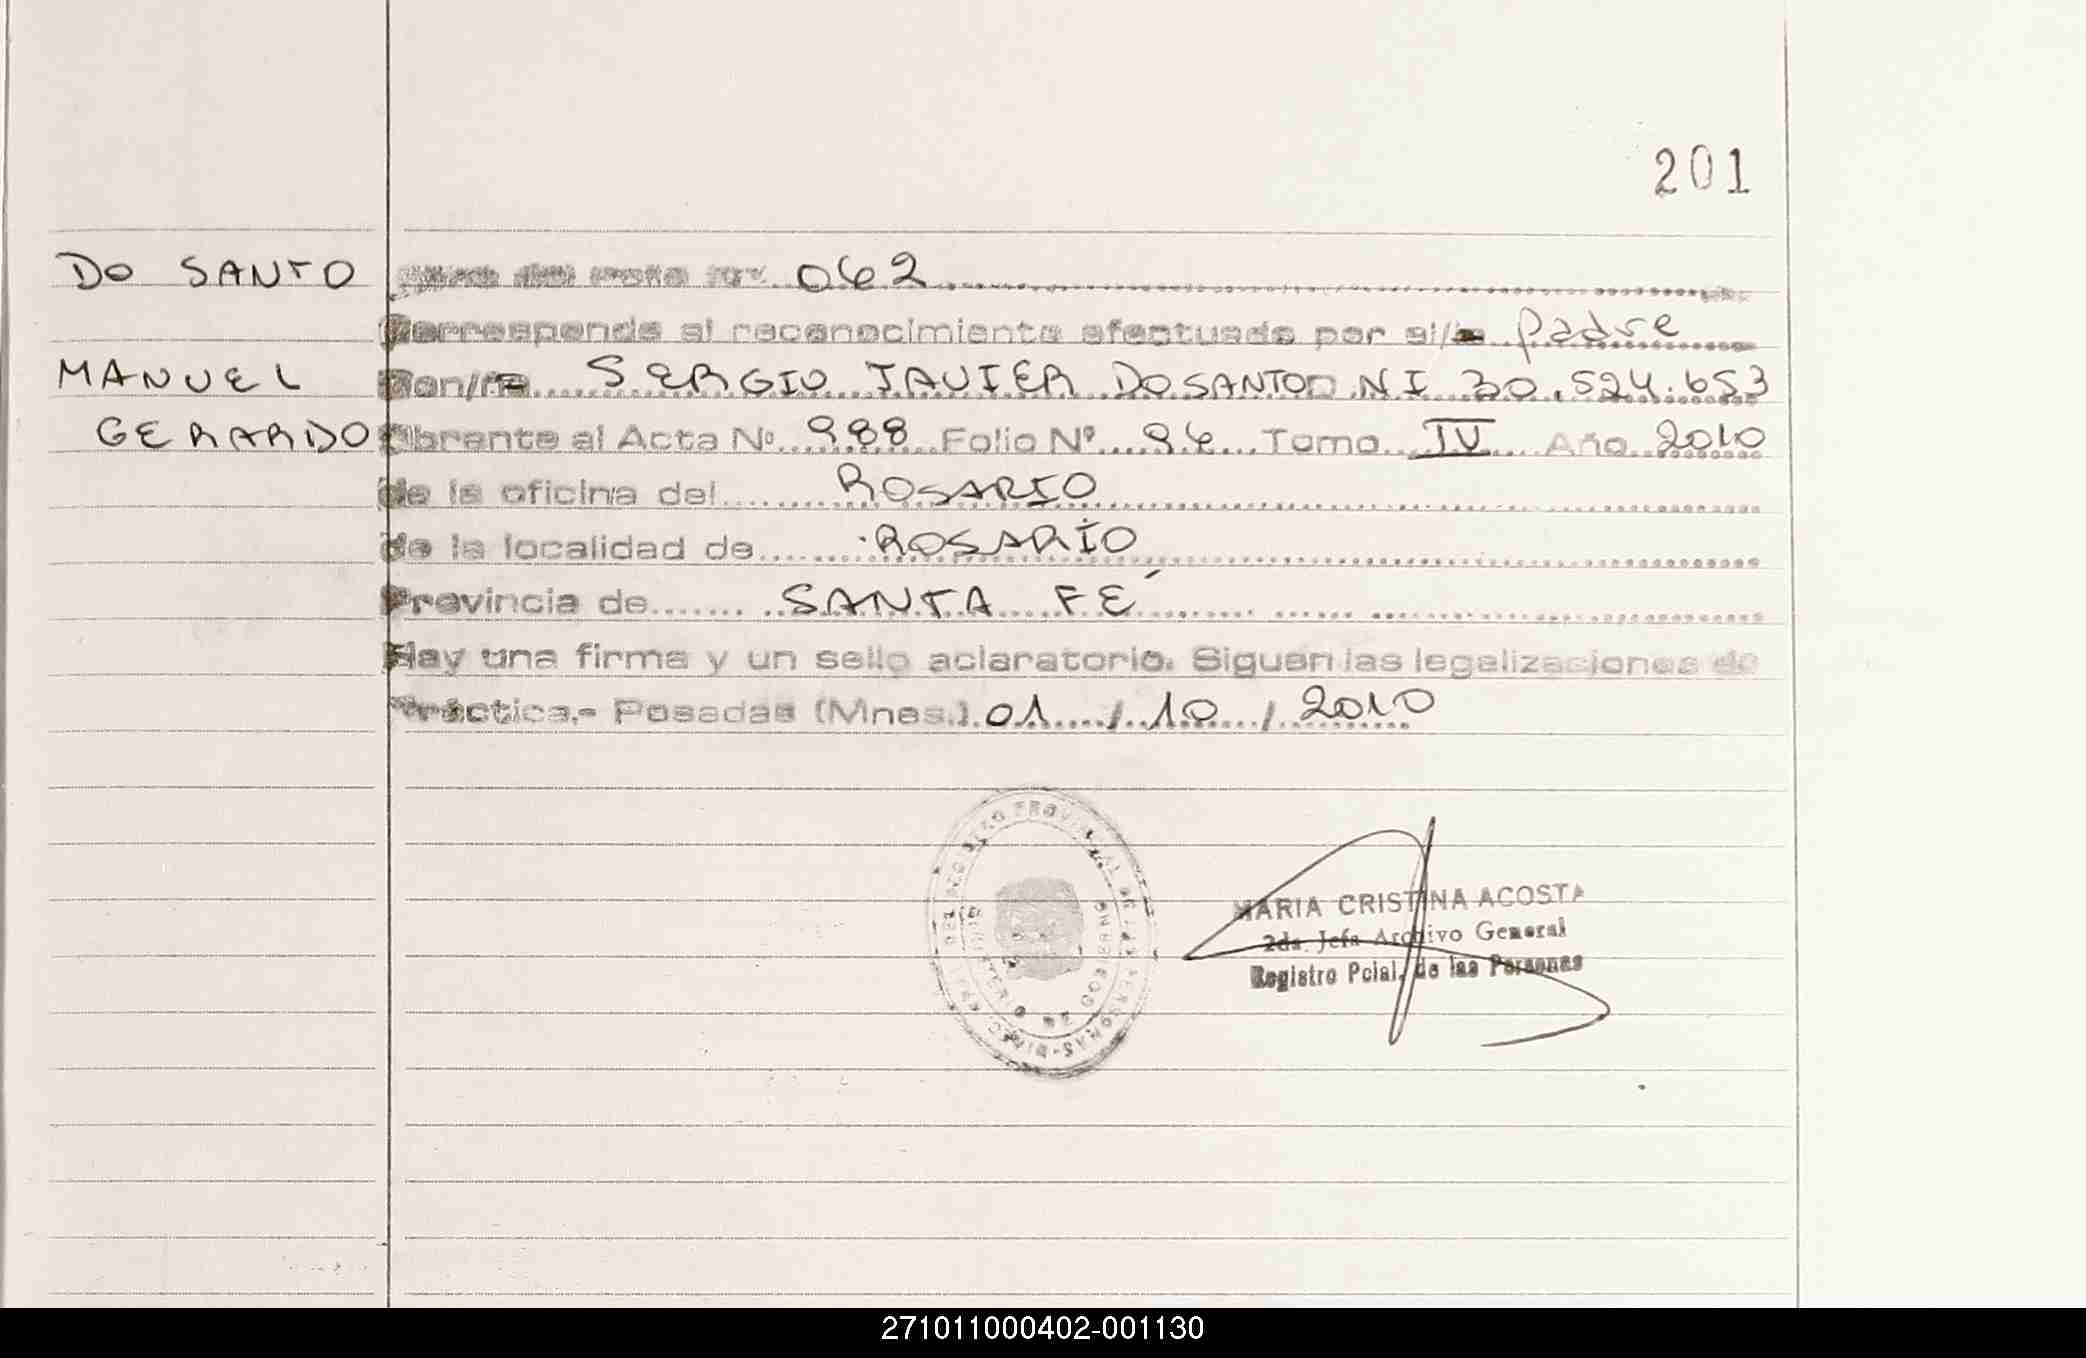 201
DO SANTO
MANUEL
GERARDO
Nota del acta Nº 062
Corresponde al reconocimiento efectuado por el/la Padre
Don/ña SERGIO JAVIER DO SANTO D N I 30.524.653
Obrante al Acta Nº 988 Folio Nº 96 Tomo IV Año 2010
de la oficina del ROSARIO
de la localidad de ROSARIO
Provincia de SANTA FÉ
Hay una firma y un sello aclaratorio. Siguen las legalizaciones de
Práctica.- Posadas (Mnes.) 01 / 10 / 2010
MARIA CRISTINA ACOSTA
2da. Jefa Archivo General
Registro Pcial. de las Personas
REGISTRO PROVINCIAL DE LAS PERSONAS
MINISTERIO DE GOBIERNO
271011000402-001130